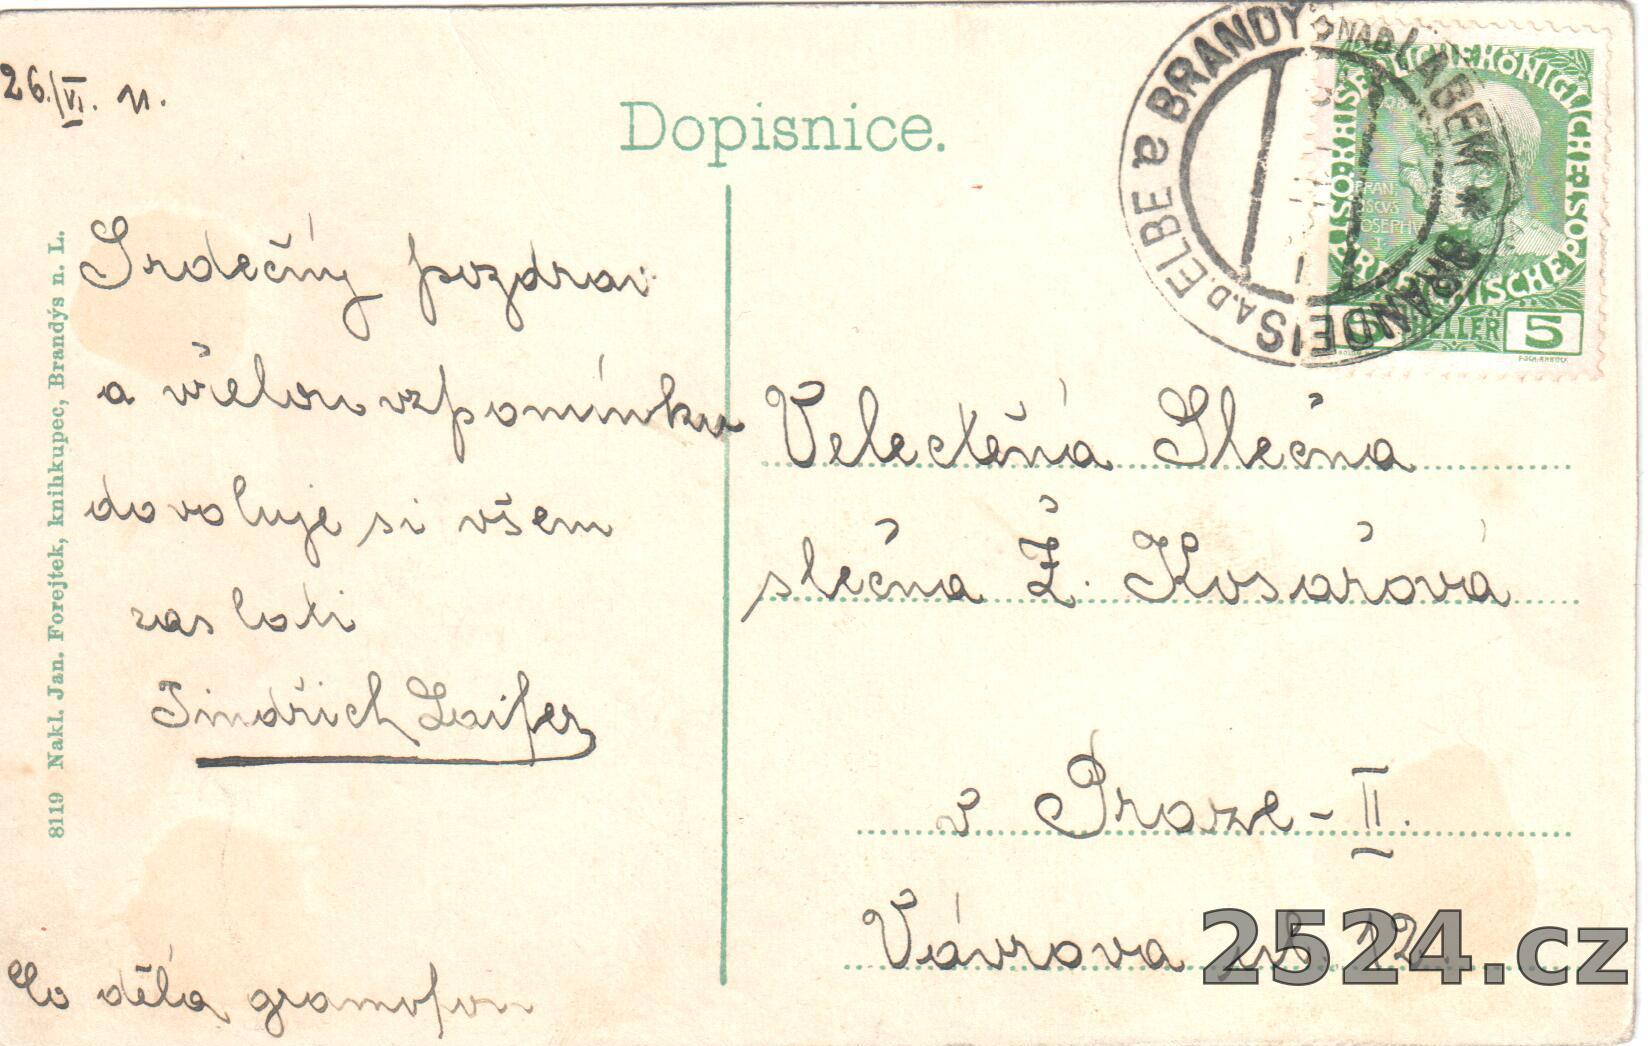 26./VI. 11.
Dopisnice.
BRANDÝS NAD LABEM * BRANDEIS A.D. ELBE a
KAISERLICHE KÖNIGLICHE
HELLER 5
8119 Nakl. Jan. Forejtek, knihkupec, Brandýs n. L.
Srdečný pozdrav
a vřelou vzpomínku
dovoluje si všem
zaslati
Jindřich Laifer
Co dělá gramofon
Velectěná Slečna
slečna Ž. Kosařová
v Praze-II.
Vávrova ul. 12.
2524.cz